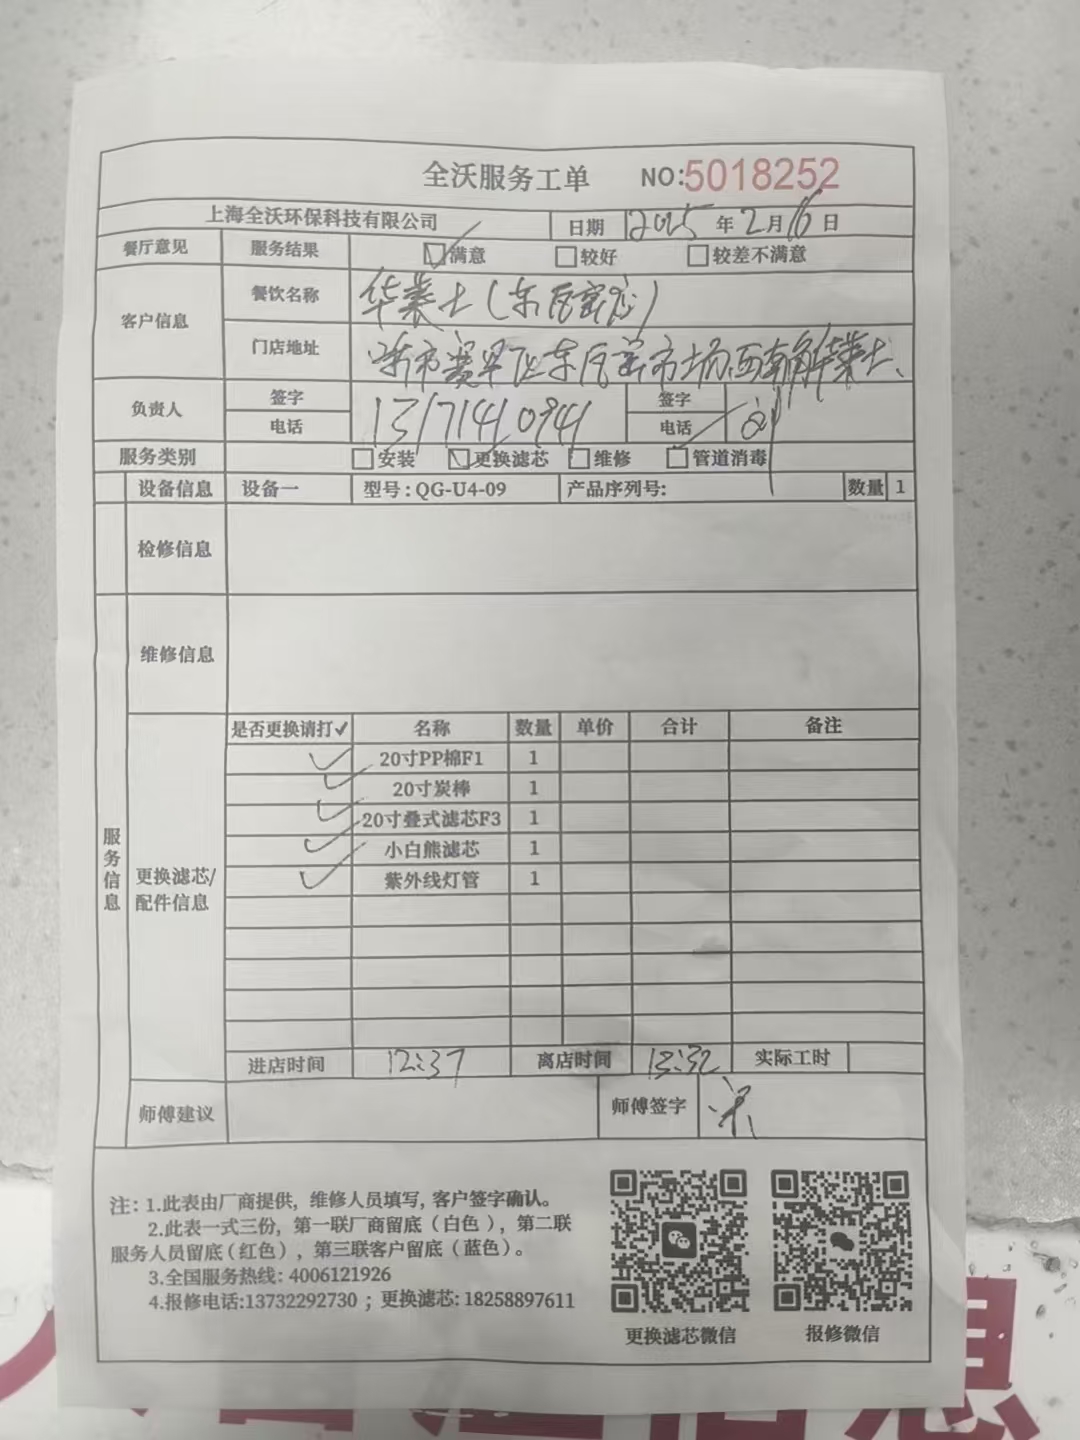 全沃服务工单 NO:5018252
上海全沃环保科技有限公司 日期 2025年2月16日
餐厅意见 服务结果 满意 较好 较差不满意
客户信息 餐饮名称 华莱士(东瓦窑店)
门店地址 市赛罕区东瓦窑市场西南角华莱士
负责人 签字 签字
电话 13171410941 电话
服务类别 安装 更换滤芯 维修 管道消毒
设备信息 设备一 型号:QG-U4-09 产品序列号: 数量 1
检修信息
维修信息
服务信息
更换滤芯/配件信息
是否更换请打✓ 名称 数量 单价 合计 备注
✓ 20寸PP棉F1 1
✓ 20寸炭棒 1
✓ 20寸叠式滤芯F3 1
✓ 小白熊滤芯 1
✓ 紫外线灯管 1
进店时间 12:37 离店时间 13:32 实际工时
师傅建议 师傅签字
注:1.此表由厂商提供,维修人员填写,客户签字确认。
2.此表一式三份,第一联厂商留底(白色),第二联
服务人员留底(红色),第三联客户留底(蓝色)。
3.全国服务热线:4006121926
4.报修电话:13732292730;更换滤芯:18258897611
更换滤芯微信 报修微信